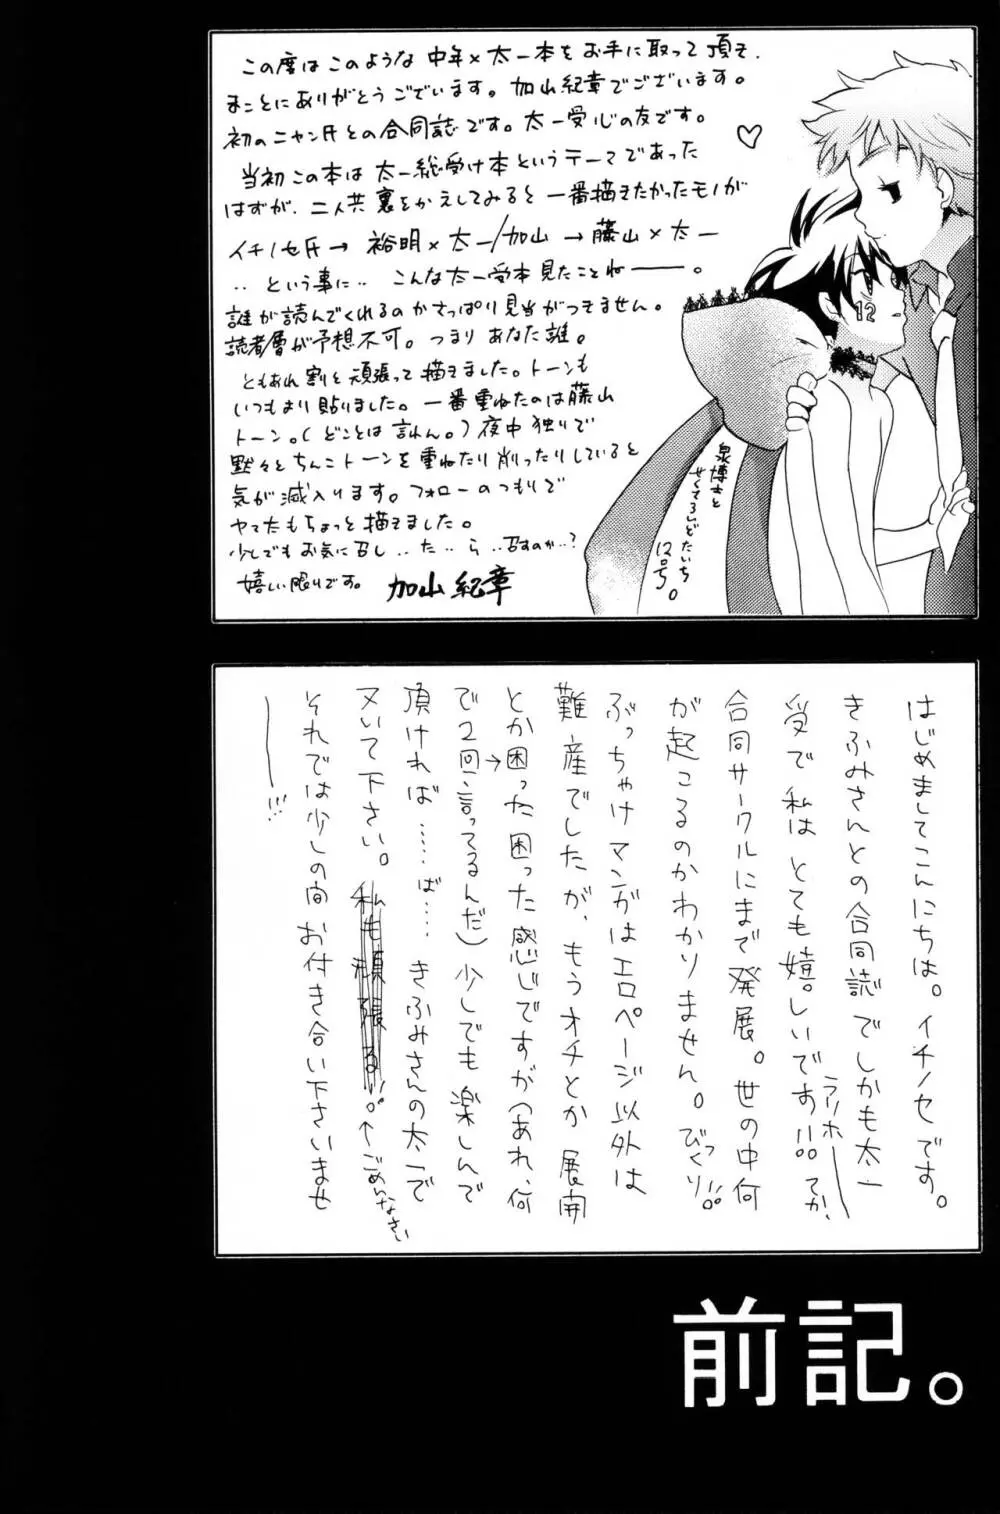 この度はこのような中年×太一本をお手に取って頂き、
まことにありがとうございます。加山紀章でございます。
初のニャン氏との合同誌です。太一受心の友です。
当初この本は太一総受け本というテーマであった
はずが、二人共裏をかえしてみると一番描きたかったモノが
イチノセ氏→裕明×太一/加山→藤山×太一
‥という事に‥ こんな太一受本見たことねー。
誰が読んでくれるのかさっぱり見当がつきません。
読者層が予想不可。つまりあなた誰。
ともあれ割と頑張って描きました。トーンも
いつもより貼りました。一番重ねたのは藤山
トーン。(どことは言わん。)夜中独りで
黙々とちんこトーンを重ねたり削ったりしていると
気が滅入ります。フォローのつもりで
ヤマたもちょっと描きました。
少しでもお気に召し‥た‥ら‥召すのか‥?
嬉しい限りです。 加山紀章
12
泉博士と
せくてろいどたいち
12ごう。
はじめましてこんにちは。イチノセです。
きふみさんとの合同誌でしかも太一
受で私はとても嬉しいです!!。てか、
ラリホー
合同サークルにまで発展。世の中何
が起こるのかわかりません。びっくり!!。
ぶっちゃけマンガはエロページ以外は
難産でしたが、もうオチとか展開
とか困った困った感じですが(あれ、何
で2回言ってるんだ)少しでも楽しんで
頂ければ……ば…… きふみさんの太一で
ヌいて下さい。私も頑張る!!。←ごめんなさい
それでは少しの間お付き合い下さいませ
ー!!!
前記。